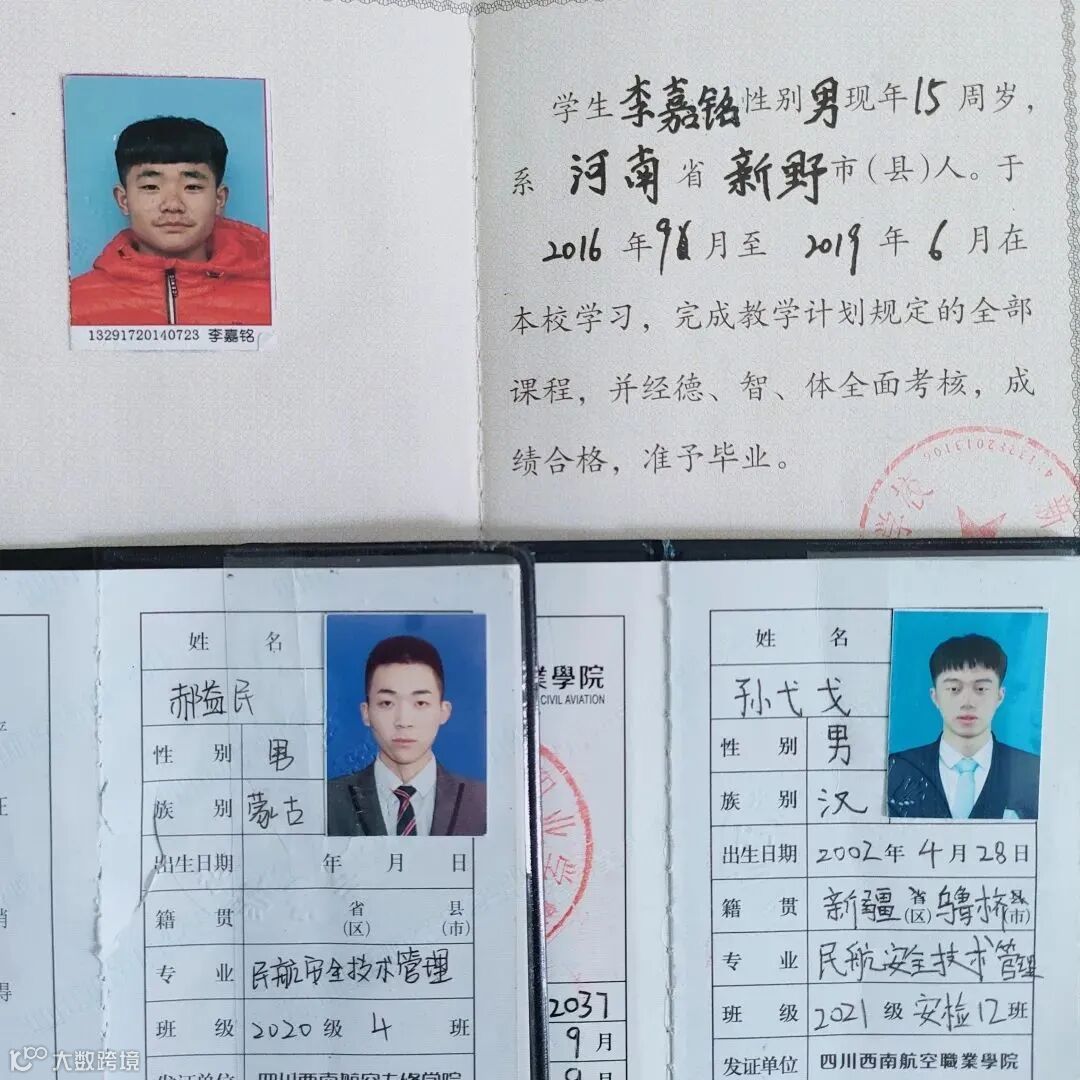 学生李嘉铭性别男现年15周岁，
系 河南省 新野市(县)人。于
2016年9月至 2019年6月在
本校学习，完成教学计划规定的全部
课程，并经德、智、体全面考核，成
绩合格，准予毕业。
13291720140723 李嘉铭
学校
姓 名
郝益民
性 别 男
族 别 蒙古
出生日期 年 月 日
籍 贯 省(区) 县(市)
专 业 民航安全技术管理
班 级 2020级 4 班
发证单位 四川西南航空专修学院
業學院
CIVIL AVIATION
2037
9月
9月
姓 名
孙弋戈
性 别 男
族 别 汉
出生日期 2002年4月28日
籍 贯 新疆省(区)乌鲁木齐县(市)
专 业 民航安全技术管理
班 级 2021级 安检12班
发证单位 四川西南航空職業學院
大数跨境